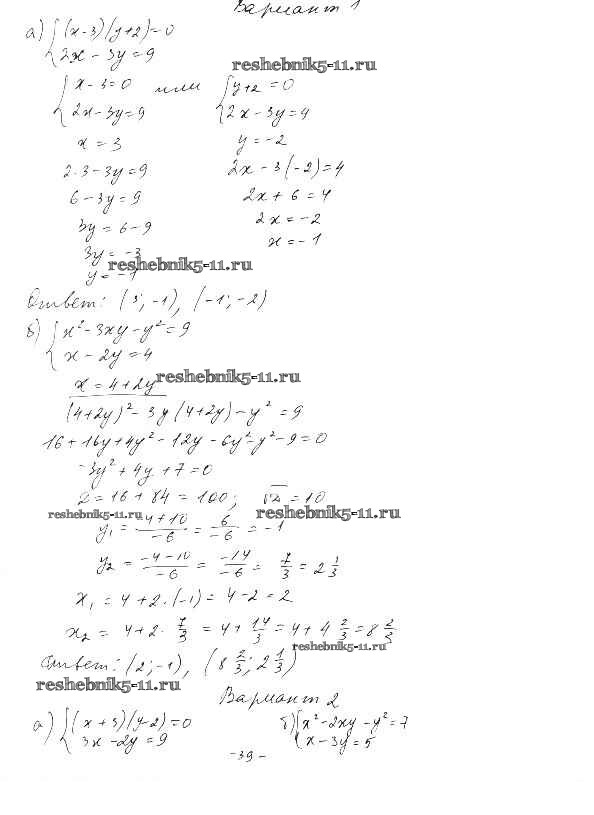 Вариант 1
а) { (x-3)(y+2)=0
2x - 3y = 9
reshebnik5-11.ru
{ x-3=0 или { y+2=0
2x-3y=9 2x-3y=4
x = 3 y = -2
2·3-3y=9 2x - 3(-2)=4
6-3y=9 2x + 6 = 4
3y = 6-9 2x = -2
3y = -3 x = -1
reshebnik5-11.ru
y = -1
Ответ: (3; -1), (-1; -2)
б) { x²-3xy-y²=9
x - 2y = 4
x = 4+2y reshebnik5-11.ru
(4+2y)² - 3y(4+2y) - y² = 9
16+16y+4y²-12y-6y²-y²-9=0
-3y²+4y+7=0
D=16+84=100; √D=10
reshebnik5-11.ru reshebnik5-11.ru
y₁ = -4+10/-6 = 6/-6 = -1
y₂ = -4-10/-6 = -14/-6 = 7/3 = 2 1/3
x₁ = 4+2·(-1)=4-2=2
x₂ = 4+2·7/3 = 4+14/3 = 4+4 2/3 = 8 2/3
reshebnik5-11.ru
Ответ: (2; -1), (8 2/3; 2 1/3)
reshebnik5-11.ru
Вариант 2
а) { (x+3)(y-2)=0 б) { x²-2xy-y²=7
3x-2y=9 x-3y=5
-39-